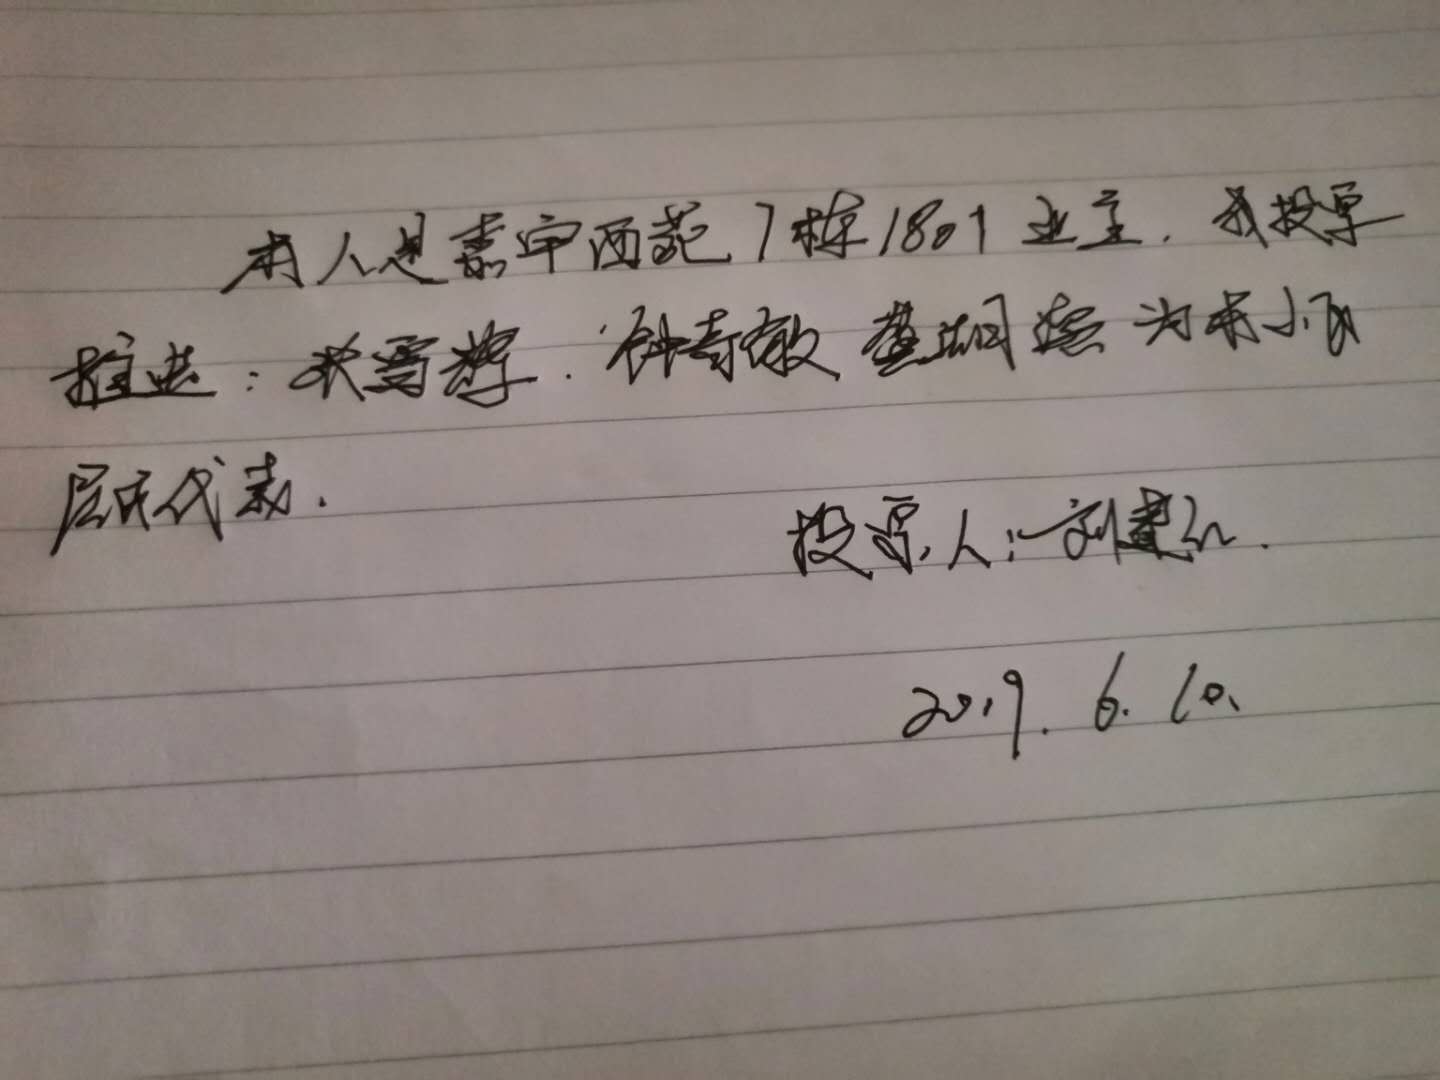 本人是嘉宇西苑7栋1801业主.我投票
推选:宋雪辉.钟奇敏 黄湖 为本小区
居民代表.
投票人:刘建
2019.6.10.